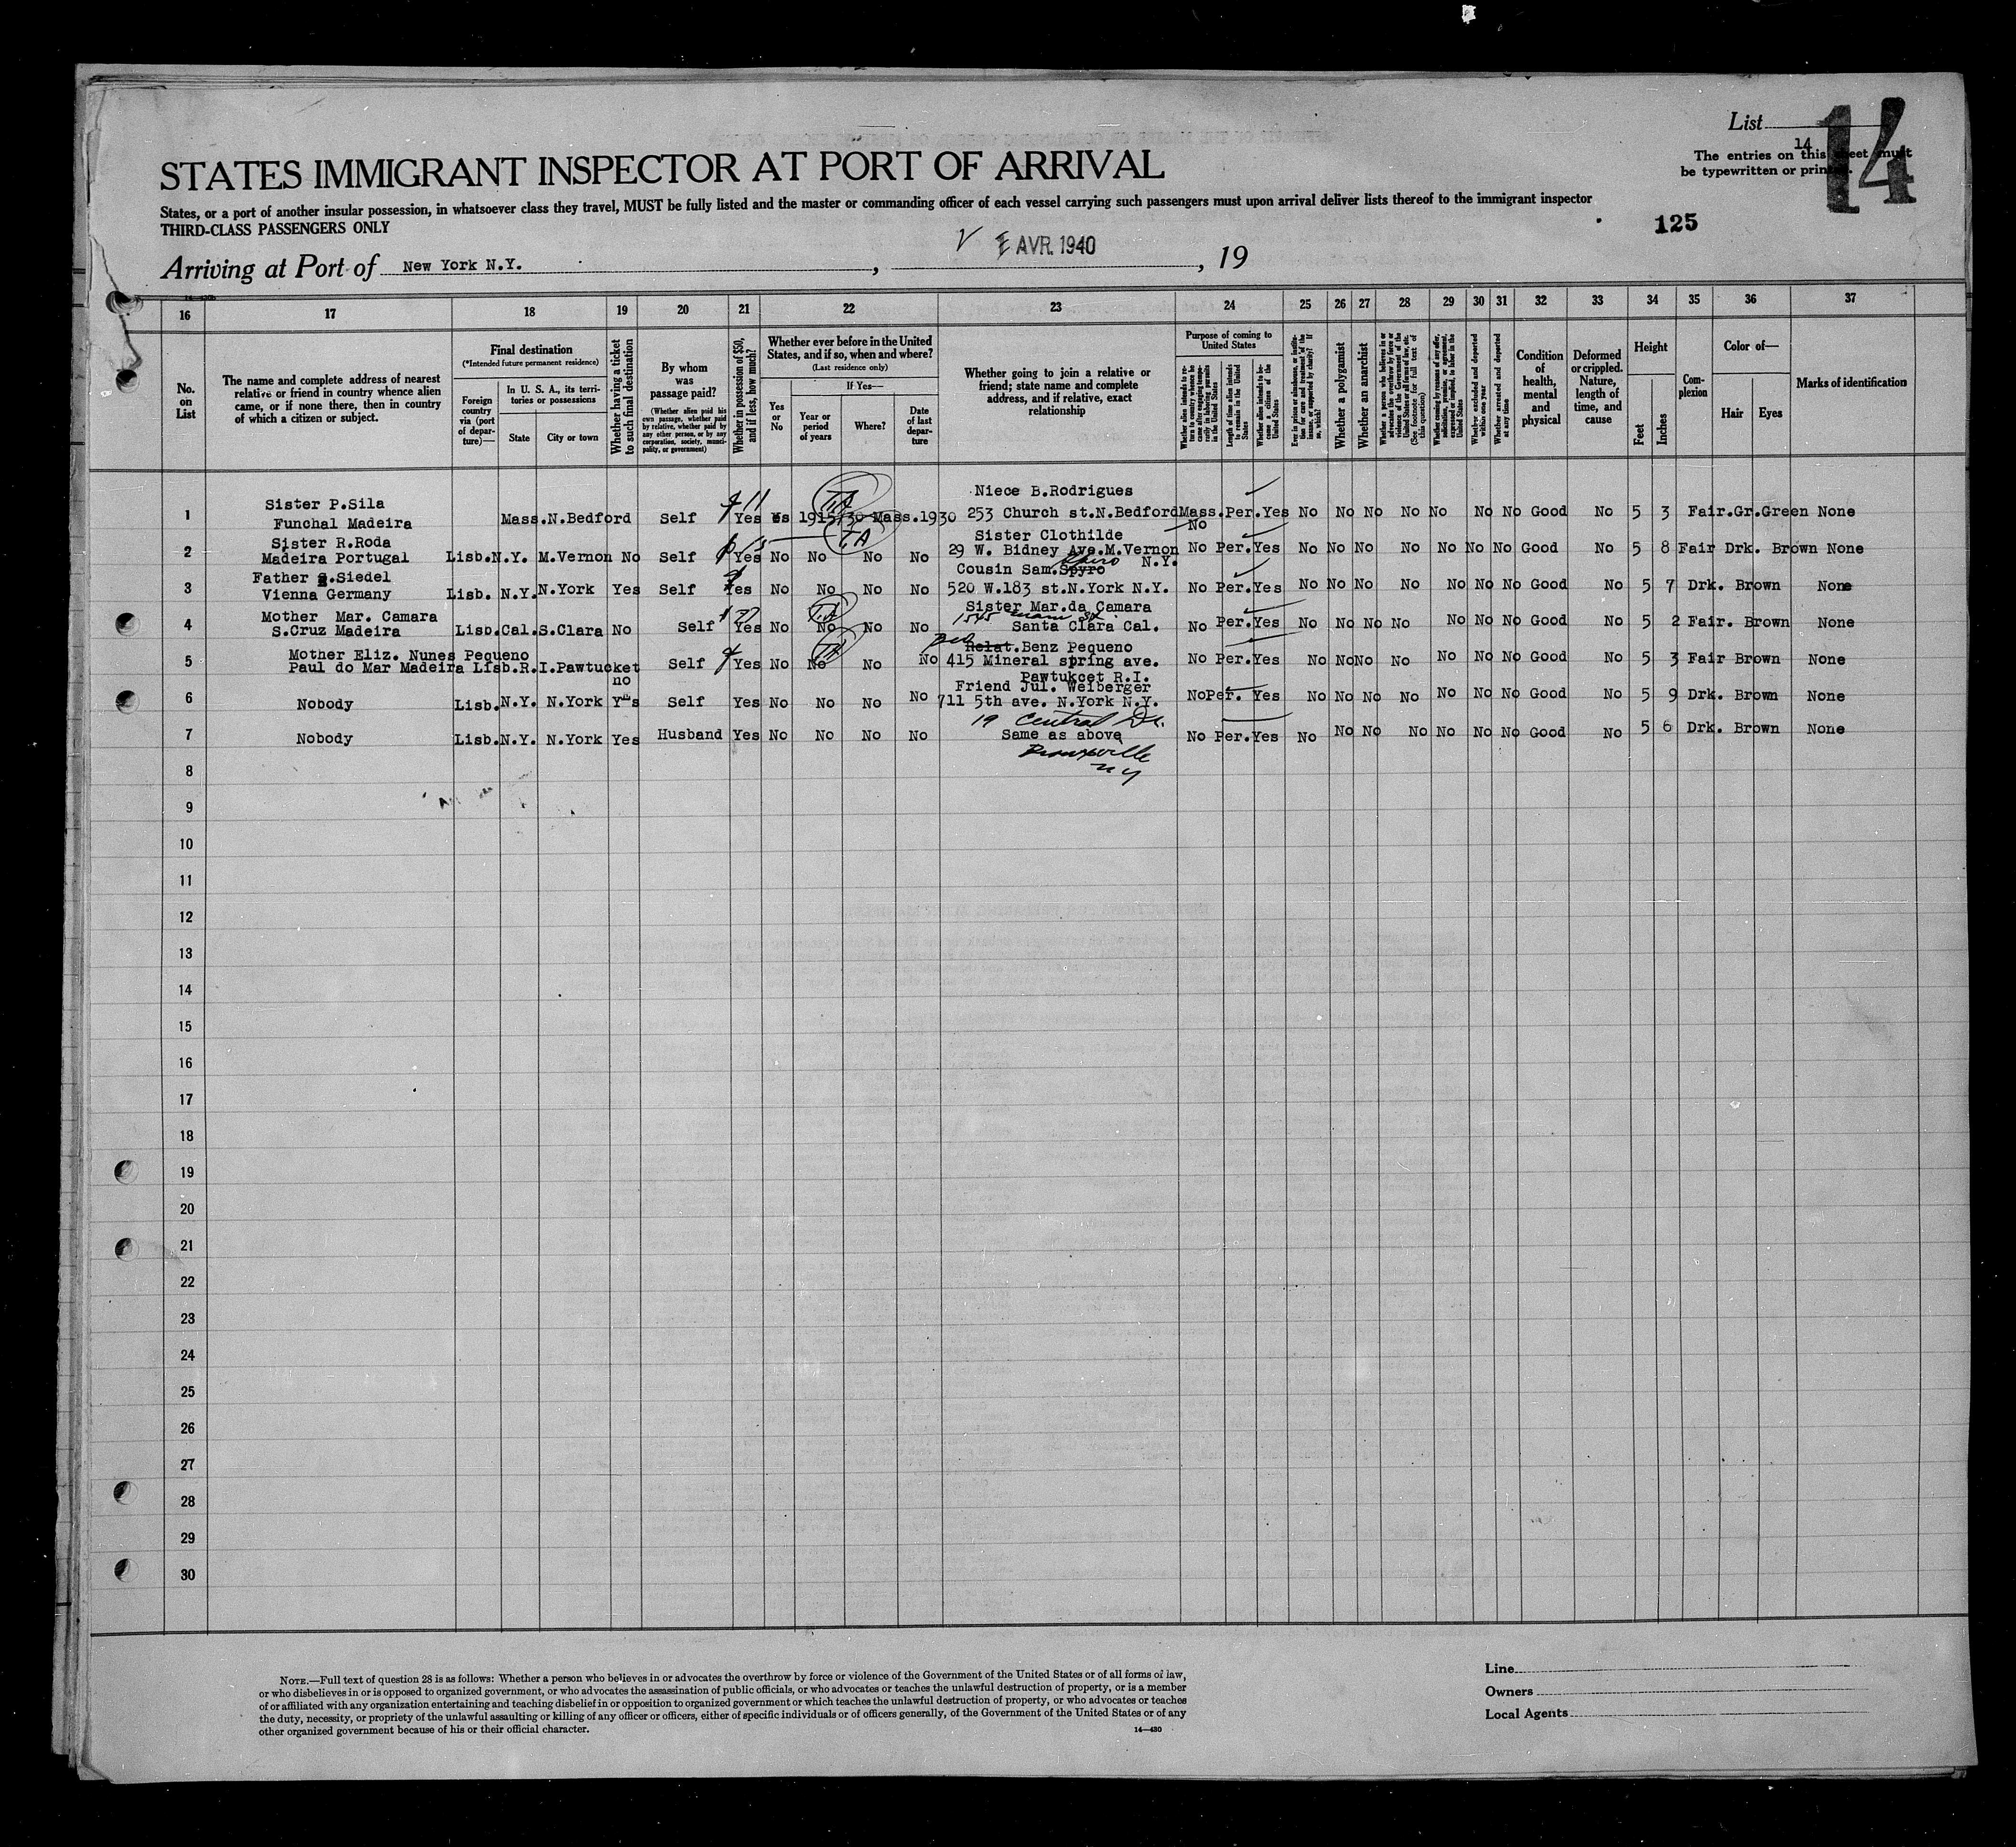 List
14
14
The entries on this sheet must
be typewritten or printed.
STATES IMMIGRANT INSPECTOR AT PORT OF ARRIVAL
States, or a port of another insular possession, in whatsoever class they travel, MUST be fully listed and the master or commanding officer of each vessel carrying such passengers must upon arrival deliver lists thereof to the immigrant inspector
THIRD-CLASS PASSENGERS ONLY
125
AVR. 1940
Arriving at Port of New York N.Y. , , 19
16 17 18 19 20 21 22 23 24 25 26 27 28 29 30 31 32 33 34 35 36 37
No. on List
The name and complete address of nearest
relative or friend in country whence alien
came, or if none there, then in country
of which a citizen or subject.
Final destination
(*Intended future permanent residence)
Foreign country via (port of departure)—
In U. S. A., its territories or possessions
State
City or town
Whether having a ticket to such final destination
By whom was passage paid?
(Whether alien paid his own passage, whether paid by relative, whether paid by any other person, or by any corporation, society, municipality, or government)
Whether in possession of $50, and if less, how much?
Whether ever before in the United
States, and if so, when and where?
(Last residence only)
Yes or No
If Yes—
Year or period of years
Where?
Date of last departure
Whether going to join a relative or
friend; state name and complete
address, and if relative, exact
relationship
Purpose of coming to United States
Length of time alien intends to remain in the United States
Whether alien intends to become a citizen of the United States
Whether a polygamist
Whether an anarchist
(See footnote for full text of this question)
Whether excluded and deported within one year
Whether arrested and deported at any time
Condition of health, mental and physical
Deformed or crippled. Nature, length of time, and cause
Height
Feet
Inches
Complexion
Color of—
Hair
Eyes
Marks of identification
Sister P.Sila Niece B.Rodrigues
1 Funchal Madeira Mass.N.Bedford Self Yes 1915/30 Mass.1930 253 Church st.N.Bedford Mass. No Per.Yes No No No No No No No Good No 5 3 Fair.Gr.Green None
Sister R.Roda Sister Clothilde
2 Madeira Portugal Lisb.N.Y. M.Vernon No Self Yes No No No No 29 W. Bidney Ave.M.Vernon N.Y. No Per.Yes No No No No No No No Good No 5 8 Fair Drk. Brown None
Father S.Siedel Cousin Sam.Spyro
3 Vienna Germany Lisb. N.Y. N.York Yes Self Yes No No No No 520 W.183 st.N.York N.Y. No Per.Yes No No No No No No No Good No 5 7 Drk. Brown None
Mother Mar. Camara Sister Mar.da Camara
4 S.Cruz Madeira Lisb.Cal.S.Clara No Self Yes No No No No 1545 Santa Clara Cal. No Per.Yes No No No No No No No Good No 5 2 Fair. Brown None
Mother Eliz. Nunes Pequeno Relat.Benz Pequeno
5 Paul do Mar Madeira Lisb.R.I.Pawtucket no Self Yes No No No No 415 Mineral spring ave. No Per.Yes No No No No No No No Good No 5 3 Fair Brown None
Pawtukcet R.I.
Friend Jul. Weiberger
6 Nobody Lisb.N.Y. N.York Yes Self Yes No No No No 711 5th ave. N.York N.Y. No Per. Yes No No No No No No No Good No 5 9 Drk. Brown None
19 Central Dr.
7 Nobody Lisb.N.Y. N.York Yes Husband Yes No No No No Same as above No Per.Yes No No No No No No No Good No 5 6 Drk. Brown None
Bronxville
N Y
8
9
10
11
12
13
14
15
16
17
18
19
20
21
22
23
24
25
26
27
28
29
30
NOTE.—Full text of question 28 is as follows: Whether a person who believes in or advocates the overthrow by force or violence of the Government of the United States or of all forms of law,
or who disbelieves in or is opposed to organized government, or who advocates the assassination of public officials, or who advocates or teaches the unlawful destruction of property, or is a member
of or affiliated with any organization entertaining and teaching disbelief in or opposition to organized government or which teaches the unlawful destruction of property, or who advocates or teaches
the duty, necessity, or propriety of the unlawful assaulting or killing of any officer or officers, either of specific individuals or of officers generally, of the Government of the United States or of any
other organized government because of his or their official character.
14—430
Line
Owners
Local Agents